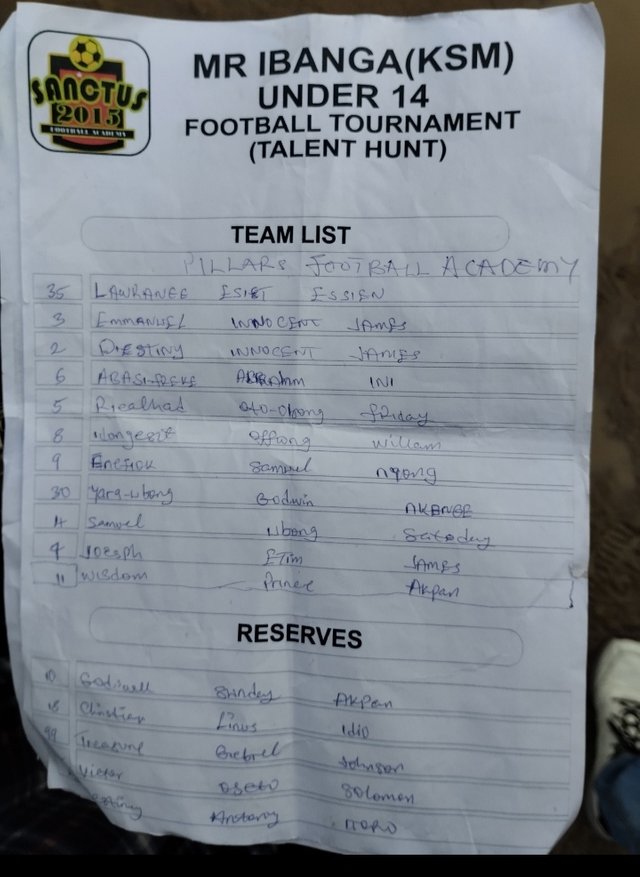 SANCTUS
2015
FOOTBALL ACADEMY
MR IBANGA(KSM)
UNDER 14
FOOTBALL TOURNAMENT
(TALENT HUNT)
TEAM LIST
PILLARS FOOTBALL ACADEMY
35 LAWRANEE ESIET ESSIEN
3 EMMANUEL INNOCENT JAMES
2 DESTINY INNOCENT JAMES
6 INI
5 Oto-Obong friday
8 Idongesit Offiong William
9 Samuel nyong
30 Godwin
Samuel Ubong Satoday
Joesph ETim JAMES
11 WISDOM Prince Akpan
RESERVES
10 Godswill Sunday Akpan
18 Christian Linus Idio
99 Treasure Johnson
Victor Solomon
ITORO